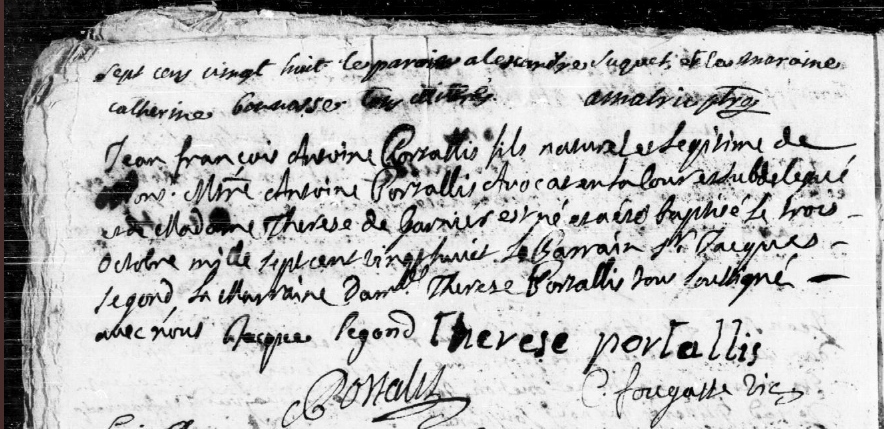 sept cens vingt huit le parain alexandre suquet et la maraine
catherine bonnasse tous illitrés amalric ptre
Jean françois Antoine Portallis fils naturel et Legitime de
Mons.r Mtre Antoine Portallis Avocat en la Cour et subdelegué
et de Madame Therese de Garnier est né et a été baptisé Le trois
octobre mille sept cent vingt huict Le Parrain Sr. Jacques
Segond La Marraine Dam.lle Therese Portallis tous soussigné
avec nous Jacques Segond Therese portallis
Portalis fougasse vic